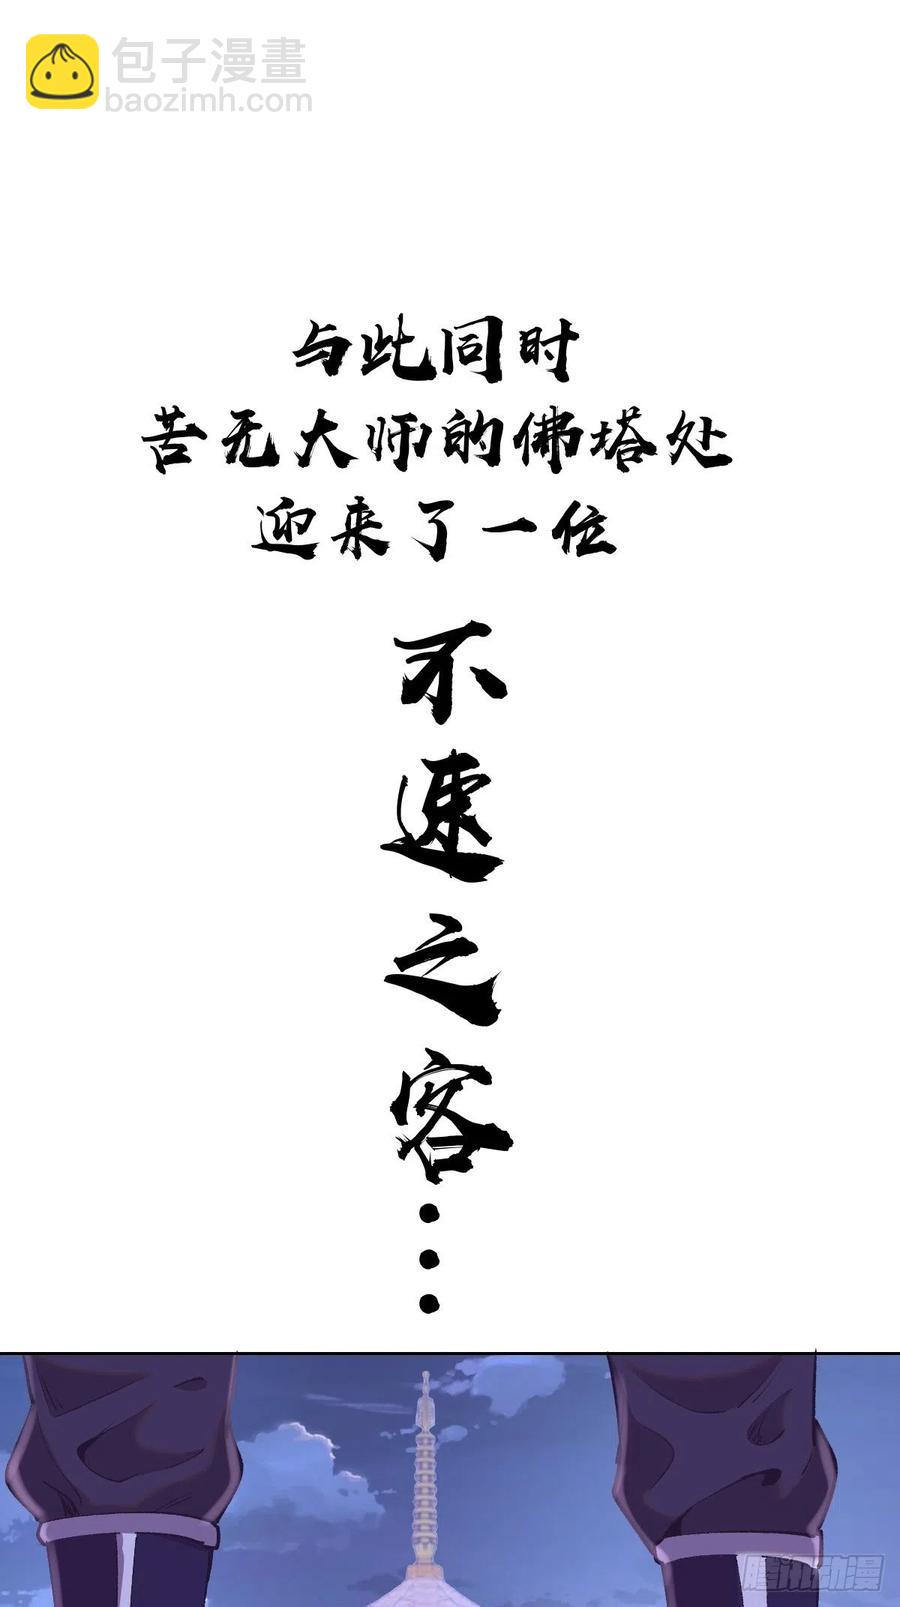 包子漫畫
baozimh.com
与此同时
苦无大师的佛塔处
迎来了一位
不速之客...
腾讯动漫